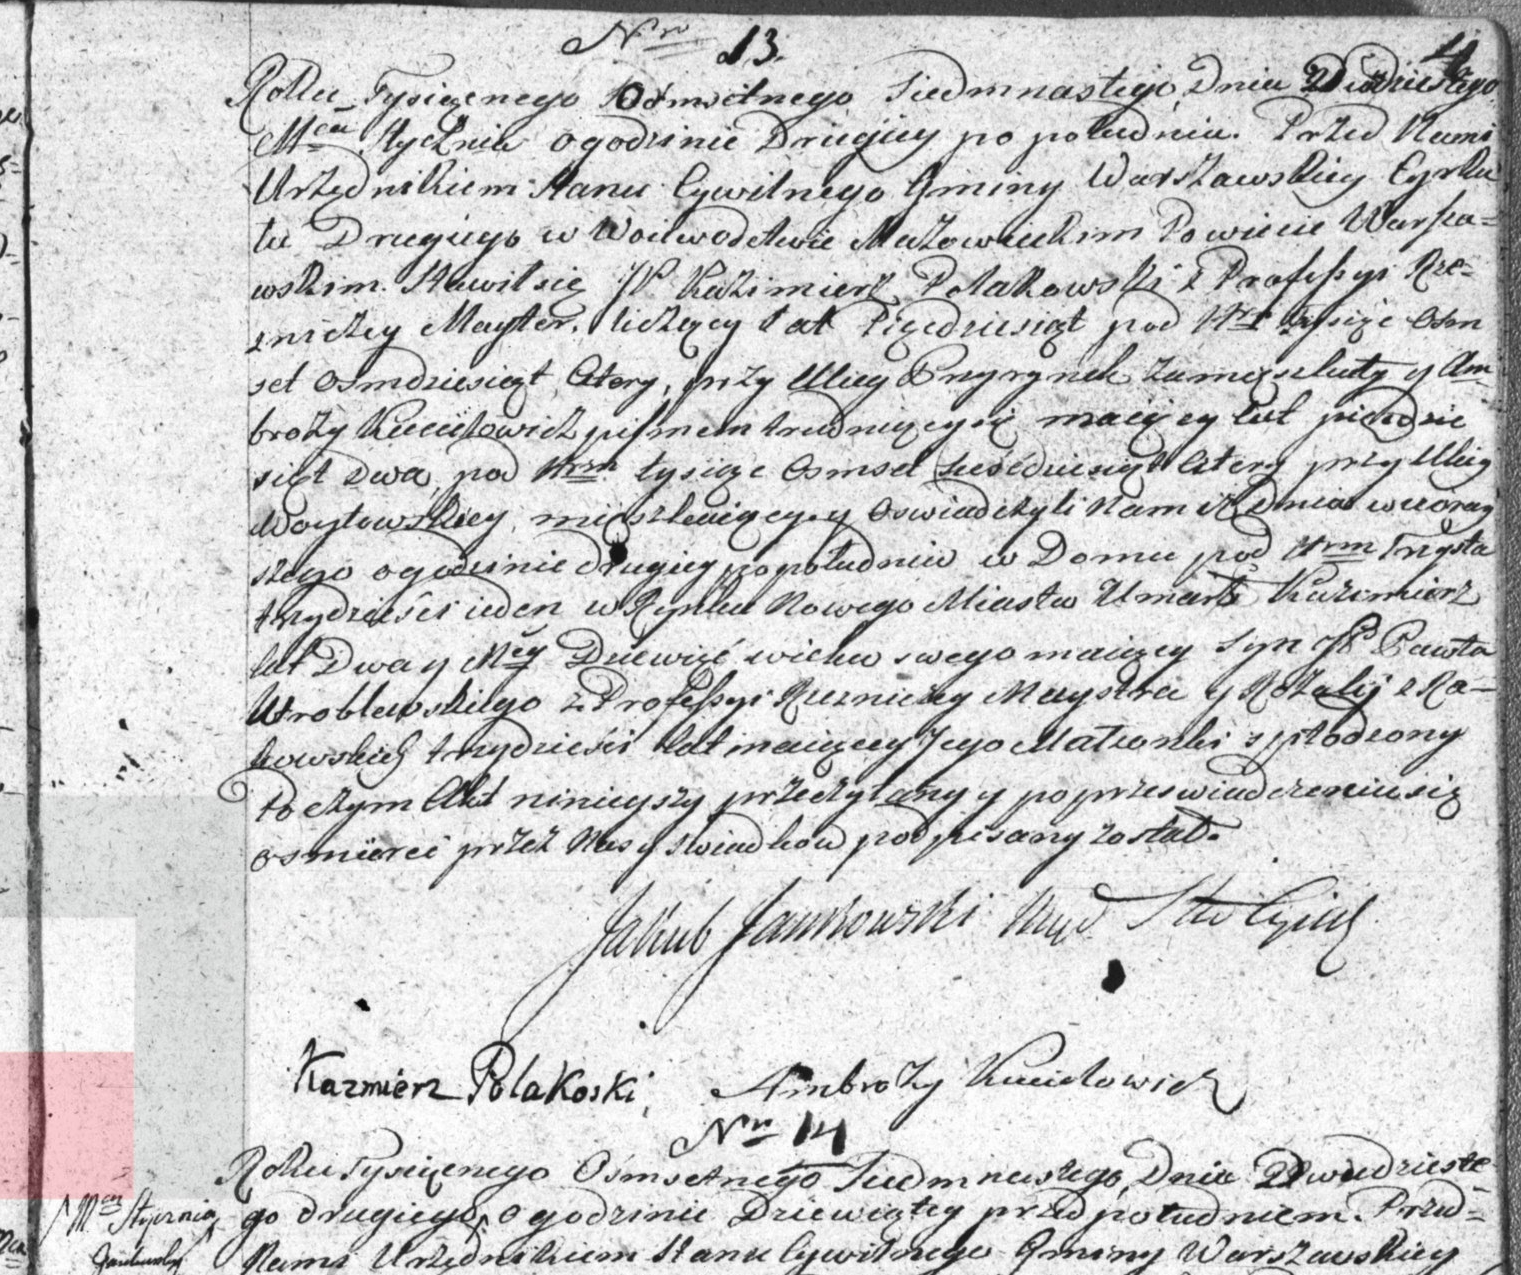 Nro 13.
4
Roku Tysiącnego Osmsetnego Siedmnastego, Dnia Dwudziestego
Mca Stycznia o godzinie Drugiey po południu. Przed Nami
Urzędnikiem Stanu Cywilnego Gminy Warszawskiey Cyrku-
łu Drugiego w Woiewodztwie Mazowieckim Powiecie Warsza-
wskim. Stawił się JP Kazimierz Polakowski z Professyi Rze-
zniczey Mayster, liczący lat Pięćdziesiąt pod Nrm tysiąc Osm
set Osmdziesiąt Cztery, przy Ulicy Przyrynek zamięszkały y Am-
broży Kuciłowicz pismem trudniący się maiący lat pięćdzie
siąt dwa, pod Nrm tysiąc Osmset sześćdziesiąt Cztery przy Ulicy
Woytowskiey mieszkaiący, y Oswiadczyli Nam iż dnia wczoray
szego o godzinie drugiey po południu w Domu pod Nrm Trzysta
trzydzieści ieden w Rynku Nowego Miasta Umarł Kazimierz
lat Dwa y Mcy Dziewięć wieku swego maiący Syn JP Pawła
Wroblewskiego z Professyi Rzezniczey Maystra y Rozalij z Ra-
kowskich trzydzieści lat maiącey Jego Małżonki spłodzony
Po czym Akt ninieyszy przeczytany y po przeswiadczeniu się
o smierci przez Nas y swiadkow podpisany został.
Jakub Jankowski Urzd Sta Cywil
Kazmierz Polakoski, Ambroży Kuciłowicz
Nro 14
Roku Tysiącnego Osmsetnego Siedmnastego, Dnia Dwudzieste-
/ Mca Stycznia go drugiego, o godzinie Dziewiątey przed południem. Przed-
Nami Urzędnikiem Stanu Cywilnego Gminy Warszawskiey